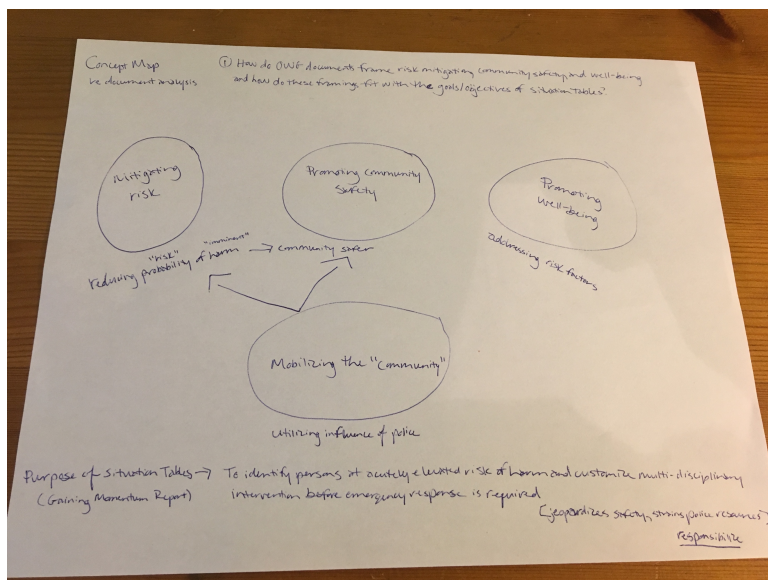 Concept Map
re document analysis
① How do OWG documents frame risk mitigating community safety, and well-being
and how do these framings fit with the goals/objectives of Situation Tables?
Mitigating
risk
Promoting Community
Safety
Promoting
Well-being
"risk" "imminent"
reducing probability of harm → community safer
addressing risk factors
Mobilizing the "Community"
Utilizing influence of police
Purpose of Situation Tables → To identify persons at acutely elevated risk of harm and customize multi-disciplinary
(Gaining Momentum Report) intervention before emergency response is required
[jeopardizes safety, strains police resources]
responsibilize